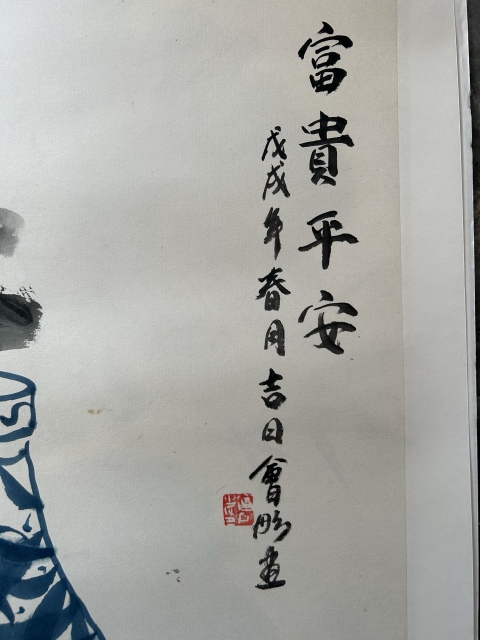 富貴平安
戊戌年春月吉日會彤畫